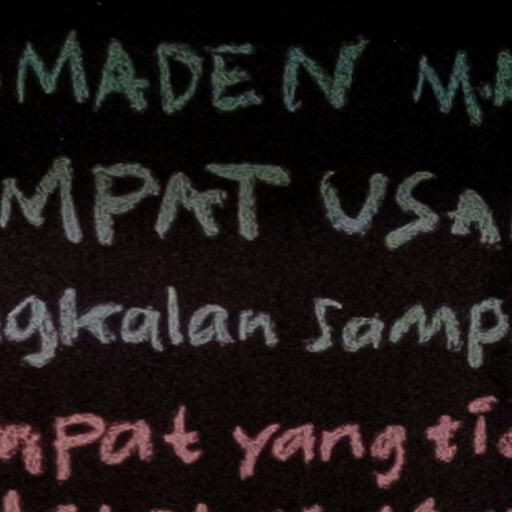 MADEN MA
MPAT USA
ngkalan samp
mpat yang ti